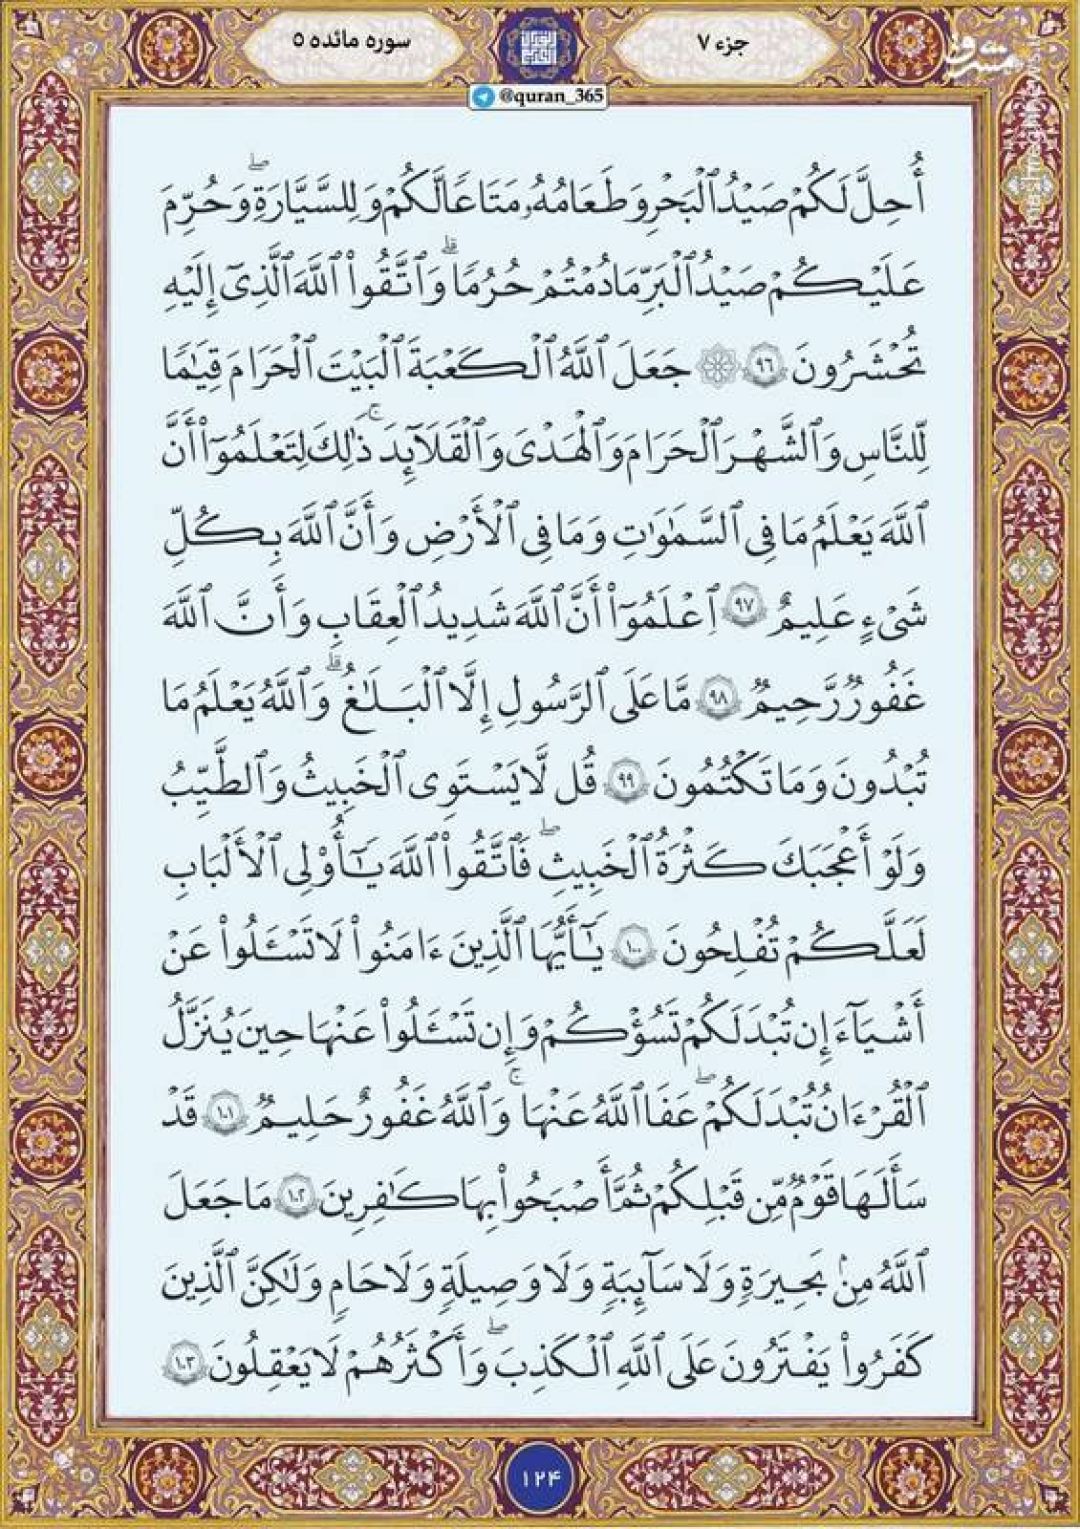 جزء ۷
سوره مائده ۵
مشرق
mashreghnews.ir
@quran_365
أُحِلَّ لَكُمْ صَيْدُ ٱلْبَحْرِ وَطَعَامُهُۥ مَتَٰعًا لَّكُمْ وَلِلسَّيَّارَةِ ۖ وَحُرِّمَ
عَلَيْكُمْ صَيْدُ ٱلْبَرِّ مَا دُمْتُمْ حُرُمًا ۗ وَٱتَّقُوا۟ ٱللَّهَ ٱلَّذِىٓ إِلَيْهِ
تُحْشَرُونَ ۹۶ ۞ جَعَلَ ٱللَّهُ ٱلْكَعْبَةَ ٱلْبَيْتَ ٱلْحَرَامَ قِيَٰمًا
لِّلنَّاسِ وَٱلشَّهْرَ ٱلْحَرَامَ وَٱلْهَدْىَ وَٱلْقَلَٰٓئِدَ ۚ ذَٰلِكَ لِتَعْلَمُوٓا۟ أَنَّ
ٱللَّهَ يَعْلَمُ مَا فِى ٱلسَّمَٰوَٰتِ وَمَا فِى ٱلْأَرْضِ وَأَنَّ ٱللَّهَ بِكُلِّ
شَىْءٍ عَلِيمٌ ۹۷ ٱعْلَمُوٓا۟ أَنَّ ٱللَّهَ شَدِيدُ ٱلْعِقَابِ وَأَنَّ ٱللَّهَ
غَفُورٌ رَّحِيمٌ ۹۸ مَّا عَلَى ٱلرَّسُولِ إِلَّا ٱلْبَلَٰغُ ۗ وَٱللَّهُ يَعْلَمُ مَا
تُبْدُونَ وَمَا تَكْتُمُونَ ۹۹ قُل لَّا يَسْتَوِى ٱلْخَبِيثُ وَٱلطَّيِّبُ
وَلَوْ أَعْجَبَكَ كَثْرَةُ ٱلْخَبِيثِ ۚ فَٱتَّقُوا۟ ٱللَّهَ يَٰٓأُو۟لِى ٱلْأَلْبَٰبِ
لَعَلَّكُمْ تُفْلِحُونَ ۱۰۰ يَٰٓأَيُّهَا ٱلَّذِينَ ءَامَنُوا۟ لَا تَسْـَٔلُوا۟ عَنْ
أَشْيَآءَ إِن تُبْدَ لَكُمْ تَسُؤْكُمْ وَإِن تَسْـَٔلُوا۟ عَنْهَا حِينَ يُنَزَّلُ
ٱلْقُرْءَانُ تُبْدَ لَكُمْ ۖ عَفَا ٱللَّهُ عَنْهَا ۚ وَٱللَّهُ غَفُورٌ حَلِيمٌ ۱۰۱ قَدْ
سَأَلَهَا قَوْمٌ مِّن قَبْلِكُمْ ثُمَّ أَصْبَحُوا۟ بِهَا كَٰفِرِينَ ۱۰۲ مَا جَعَلَ
ٱللَّهُ مِنۢ بَحِيرَةٍ وَلَا سَآئِبَةٍ وَلَا وَصِيلَةٍ وَلَا حَامٍ وَلَٰكِنَّ ٱلَّذِينَ
كَفَرُوا۟ يَفْتَرُونَ عَلَى ٱللَّهِ ٱلْكَذِبَ ۖ وَأَكْثَرُهُمْ لَا يَعْقِلُونَ ۱۰۳
۱۲۴